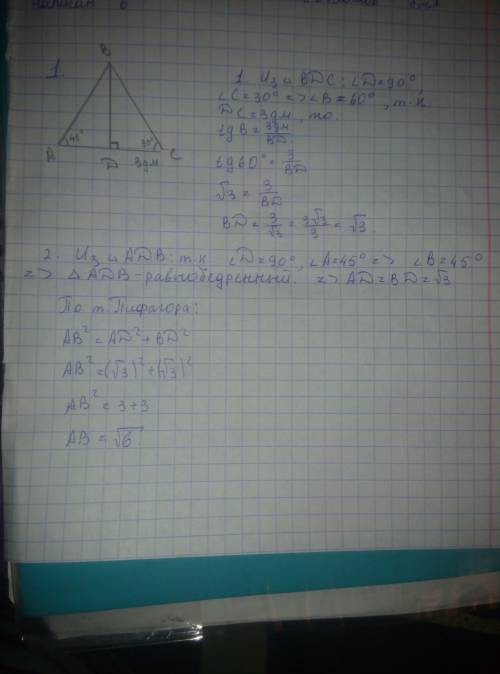 написан в
1.
B
45°
30°
A
D
C
3дм
1. Из △BDC: ∠D=90°
∠C=30° => ∠B=60°, т.к.
DC=3дм, то.
tgB=3дм/BD.
tg60°=3/BD
√3=3/BD
BD=3/√3=3√3/3=√3.
2. Из △ADB: т.к. ∠D=90°, ∠A=45° => ∠B=45°
=> △ADB-равнобедренный. => AD=BD=√3
По т. Пифагора:
AB²=AD²+BD²
AB²=(√3)²+(√3)²
AB²=3+3
AB=√6